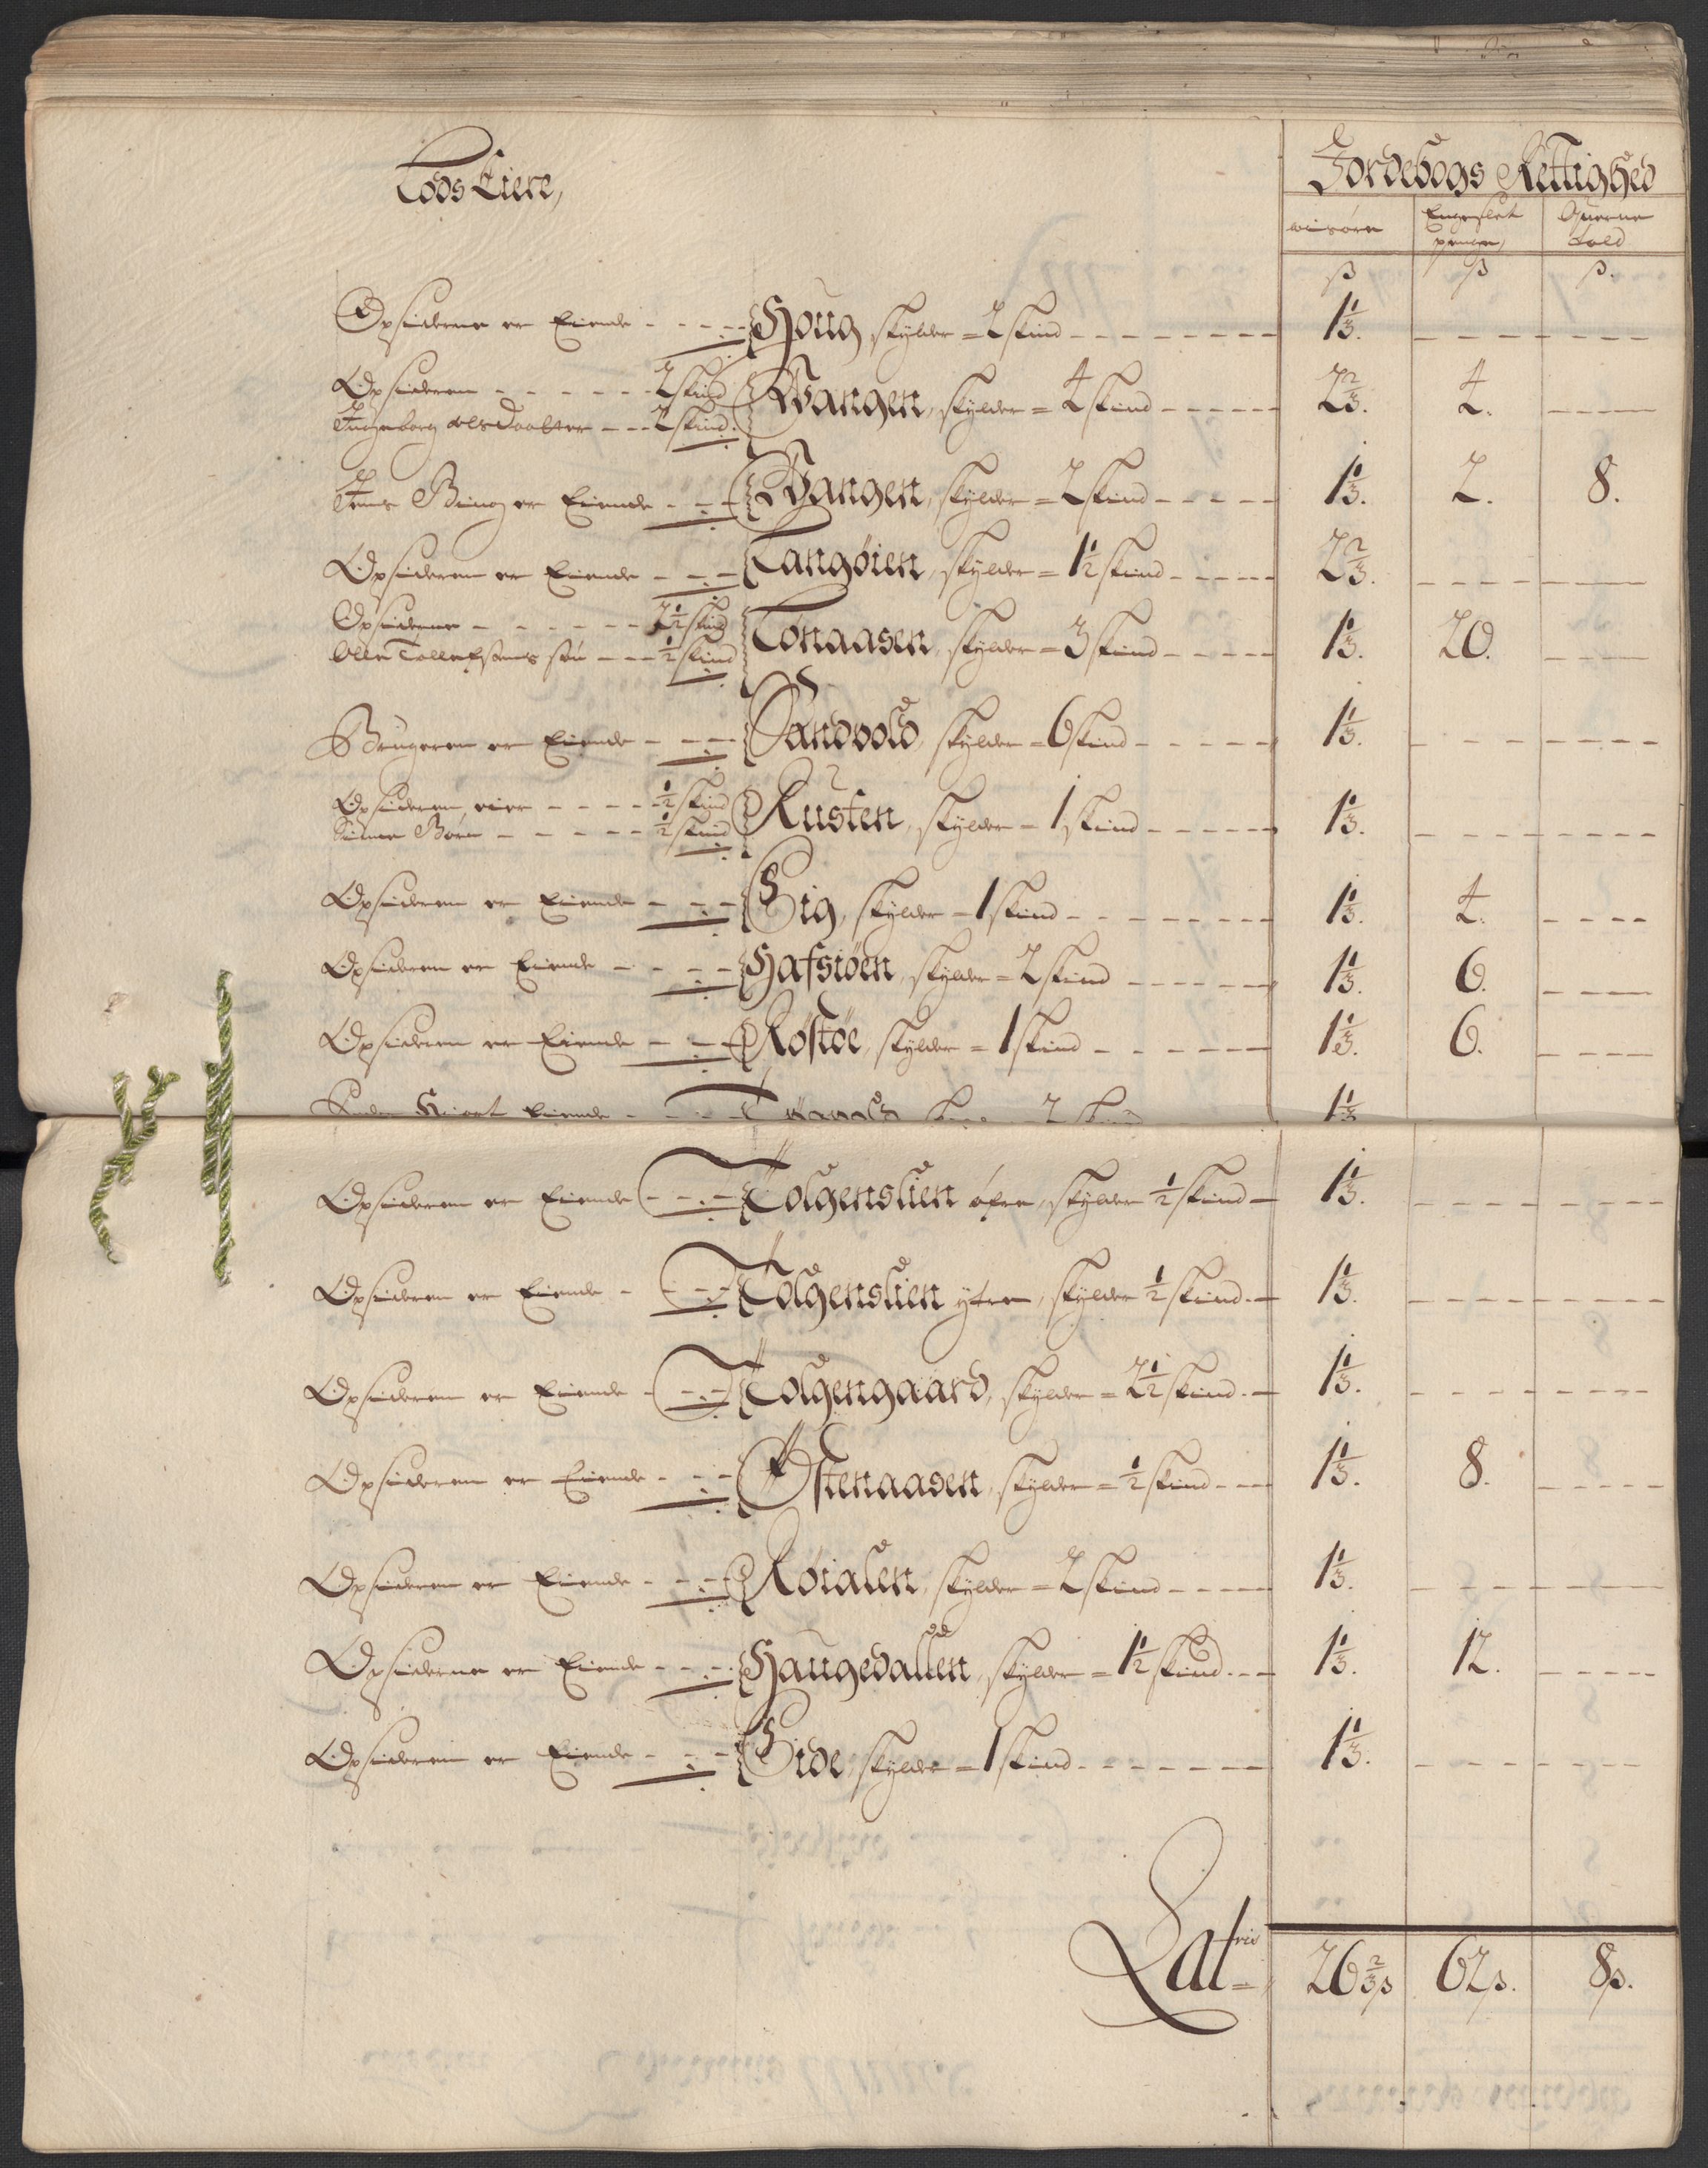 Lods Eiere,
Jordebogs Rettighed
wisøre
Engeslet penge,
Querne told
ß ß ß.
Opsiderne er Eiende - - - - Houg, skylder = 2 skind - - - 1 1/3. - - -
Opsideren - - - - - - 2 skind
Ingeborg olsdaatter - - - 2 skind. Wangen, skylder = 4 skind - - - 2 2/3. 4. - - -
Jens Bing er Eiende - - - Wangen, skylder = 2 skind - - - 1 1/3. 2. 8.
Opsideren er Eiende - - - Langøien, skylder = 1 1/2 skind - - - 2 2/3. - - -
Opsiderne - - - - - - 2 1/2 skind
Olle Tollefsens søn - - - 1/2 skind Tonaasen, skylder = 3 skind - - - 1 1/3. 20. - - -
Brugeren er Eiende - - - Sandvold, skylder = 6 skind - - - 1 1/3. - - -
Opsideren, eier - - - - 1/2 skind
Børn - - - - - 1/2 skind Rusten, skylder = 1 skind - - - 1 1/3. - - -
Opsideren er Eiende - - - Sig, skylder = 1 skind - - - 1 1/3. 4. - - -
Opsideren er Eiende - - - Hafsiøen, skylder = 2 skind - - - 1 1/3. 6. - - -
Opsideren er Eiende - - - Røstøe, skylder = 1 skind - - - 1 1/3. 6. - - -
Eiende - - - 2 1 1/3
Opsideren er Eiende - - - Tolgenslien øfre, skylder 1/2 skind - 1 1/3. - - -
Opsideren er Eiende - - - Tolgenslien ytre, skylder 1/2 skind. - 1 1/3. - - -
Opsideren er Eiende - - - Tolgengaard, skylder = 2 1/2 skind. - 1 1/3. - - -
Opsideren er Eiende - - - Østenaasen, skylder = 1/2 skind - - - 1 1/3. 8. - - -
Opsideren er Eiende - - - Røialen, skylder = 2 skind - - - 1 1/3. - - -
Opsiderne er Eiende - - - Haugedallen, skylder = 1 1/2 skind. - - 1 1/3. 12. - - -
Opsideren er Eiende - - - Side, skylder = 1 skind - - - 1 1/3. - - -
Latris = 26 2/3 ß 62 ß. 8 ß.